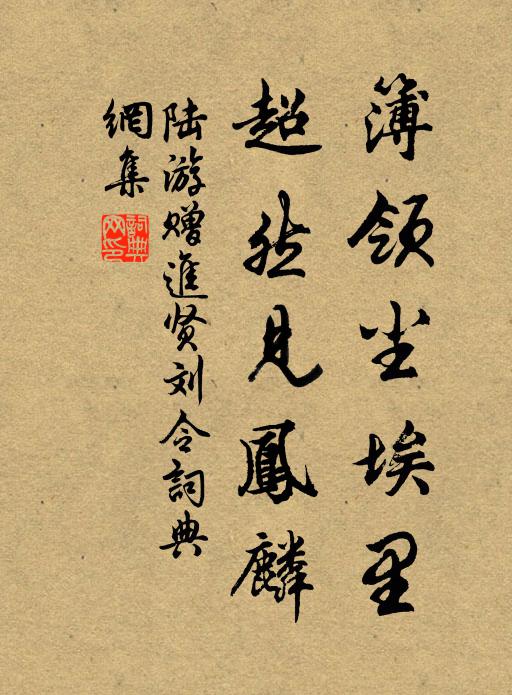 簿领尘埃里
超然见鳳麟
陆游赠進贤刘令詞典
網集
詞典網印